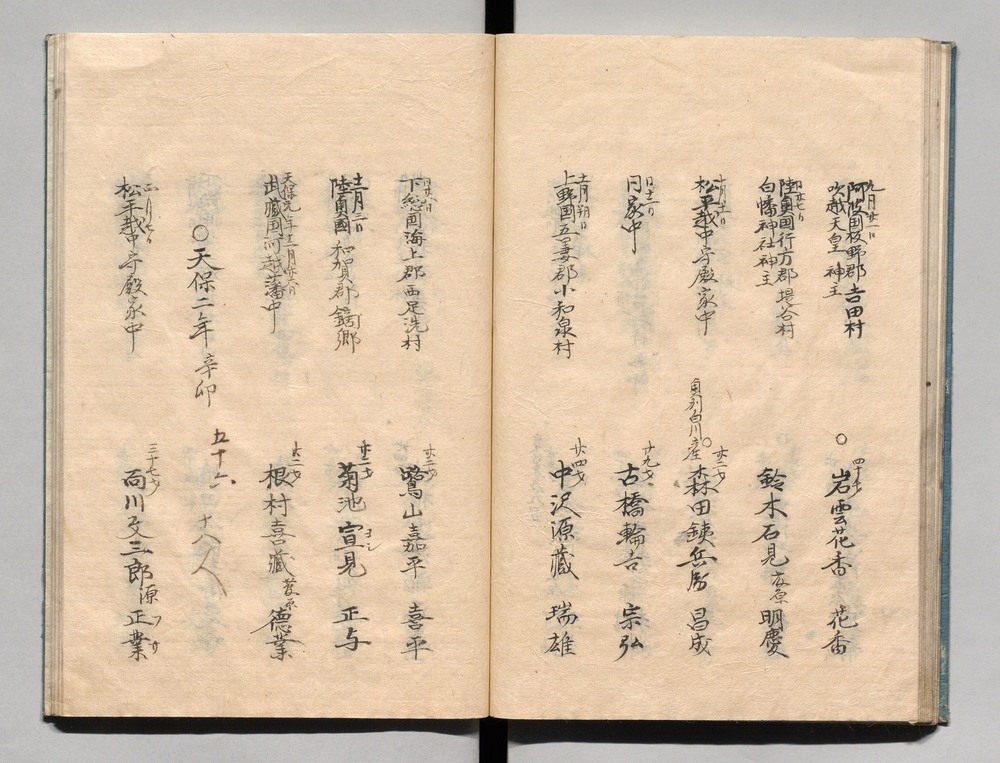 九月廿一日
阿波国板野郡吉田村
吹越天皇 神主
○ 四十才
岩雲花香 花香
同廿七日
陸奥国行方郡堤谷村
白幡神社神主
鈴木石見 友原 明慶
十月十二日
松平越中守殿家中
奥州白川産 ○ 廿二才
森田銕兵衛 昌成
同十二日
同家中
廿九才
古橋輪吉 宗弘
十一月朔日
上野国吾妻郡小和泉村
廿四才
中沢源蔵 瑞雄
同廿八日
下総国海上郡西足洗村
廿二才
鷺山嘉平 喜平
十二月三日
陸奥國和賀郡鏑町郷
廿二才
菊池宣見 正与
ヨシ
天保元年十二月廿六日
武蔵国河越藩中
廿二才
根村喜蔵 菅原 徳業
○天保二年辛卯
五十六
十八人
二月七日
松平越中守殿家中
三十七才
雨川文三郎 源 正業
フサ